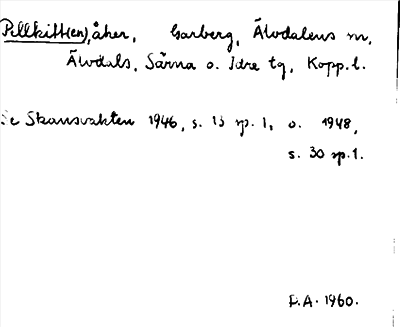 Pellkitt(en), åker, Garberg, Älvdalens sn,
Älvdals, Särna o. Idre tg, Kopp. l.
Se Skansvakten 1946, s. 13 sp. 1, o. 1948,
s. 30 sp. 1.
D.A. 1960.